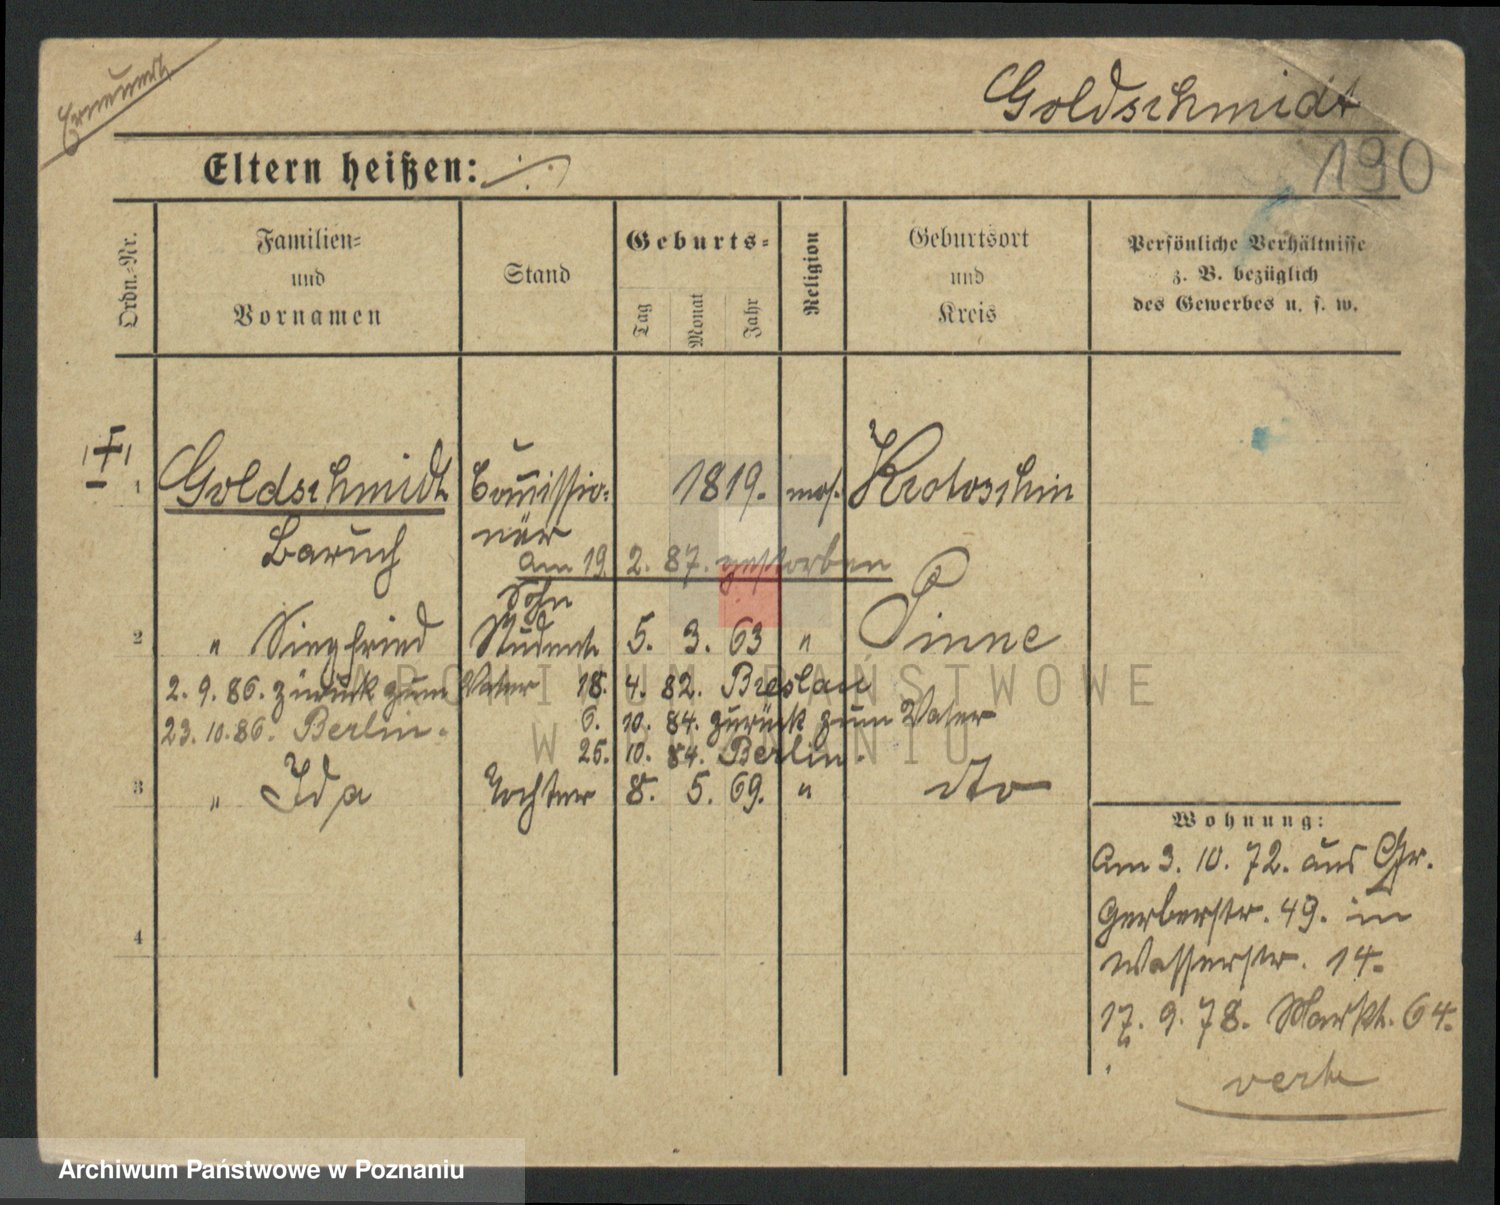 Erneuert
Goldschmidt
190
Eltern heißen: ·/·
Ordn.-Nr.
Familien-
und
Vornamen
Stand
Geburts-
Tag
Monat
Jahr
Religion
Geburtsort
und
Kreis
Persönliche Verhältnisse
z. B. bezüglich
des Gewerbes u. s. w.
1 Goldschmidt Commissio- 1819. mos. Krotoschin
Baruch när
am 19. 2. 87. gestorben
Sohn
2 " Siegfried Student 5. 3. 63 " Pinne
2. 9. 86. zurück zum Vater 18. 4. 82. Breslau
23. 10. 86. Berlin. 6. 10. 84. zurück zum Vater
25. 10. 84. Berlin.
3 " Ida Tochter 8. 5. 69. " dto
4
Wohnung:
Am 3. 10. 72. aus Gr.
Gerberstr. 49. in
Wasserstr. 14.
17. 9. 78. Markt. 64.
verte
ARCHIWUM PAŃSTWOWE
W POZNANIU
Archiwum Państwowe w Poznaniu